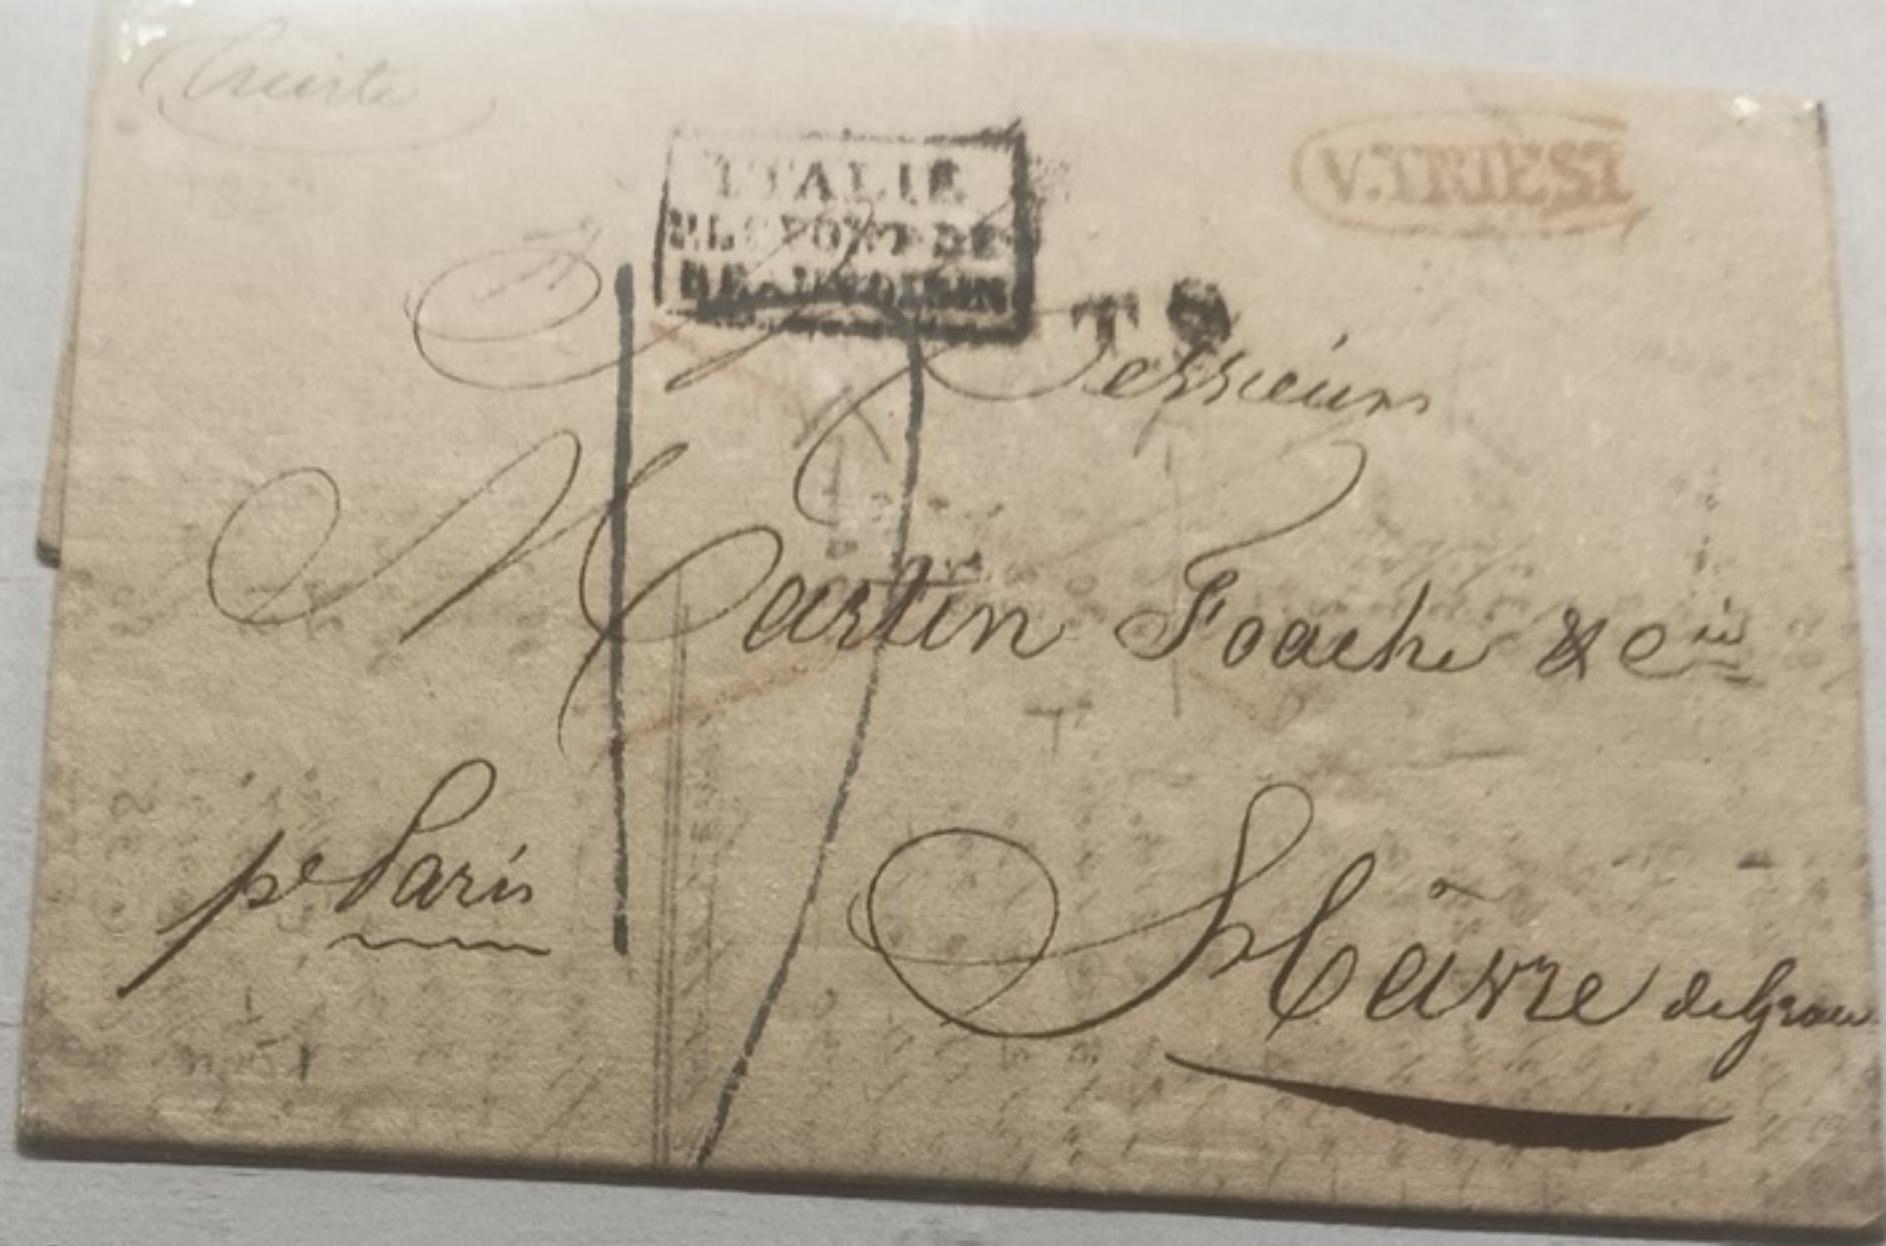 Trieste
V.TRIEST
ITALIE
PAR LE PONT-DE-
BEAUVOISIN
T S
Messieurs
Martin Foache & Cie
pr Paris
Hâvre de Grace